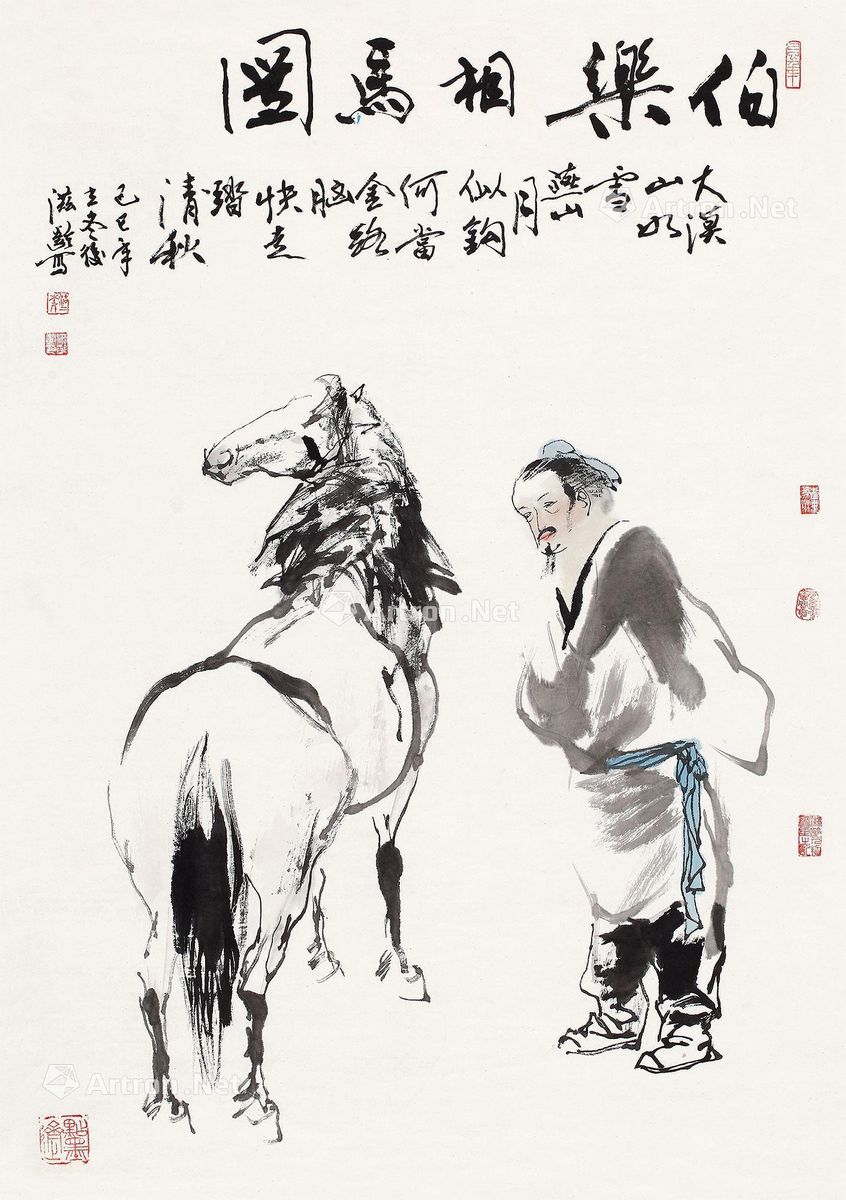 伯樂相馬圖
大漠
山如
雪
燕山
月
似鈎
何當
金絡
脑
快走
踏
清秋
己巳年
立冬後
滋齡寫
Artron.Net
Artron.Net
Artron.Net